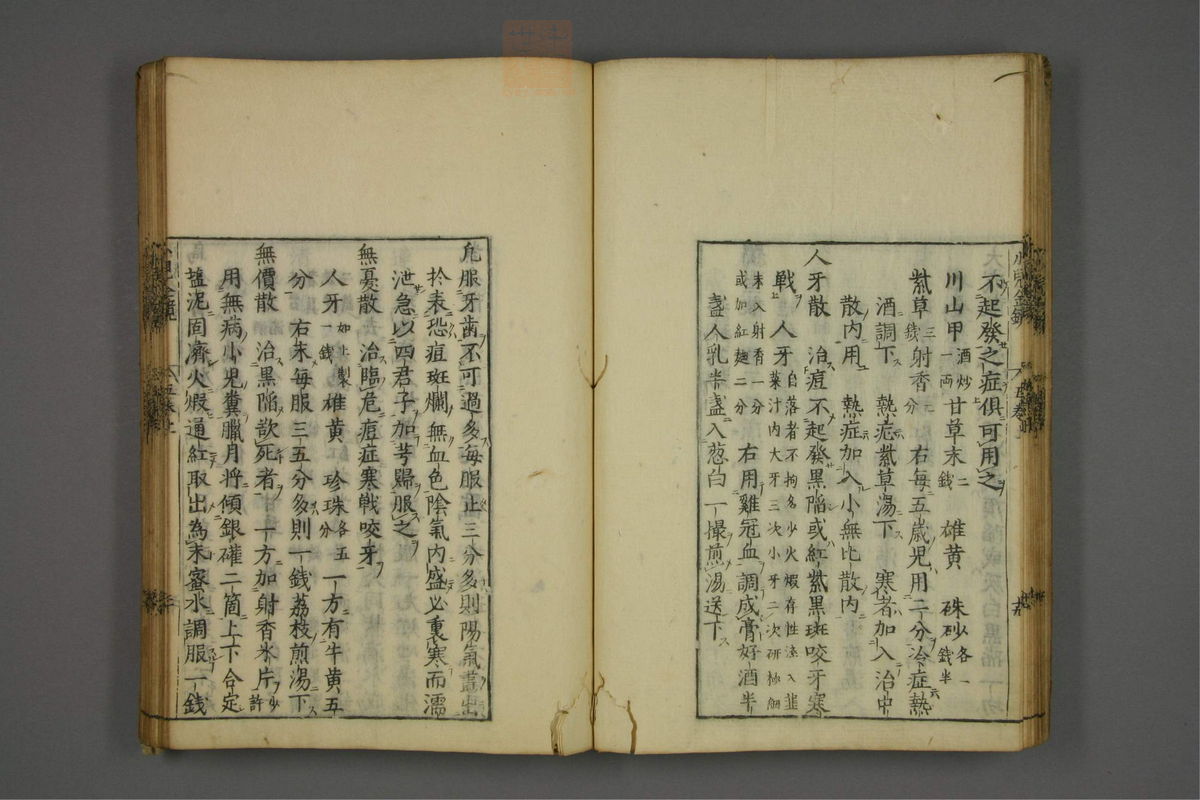 不起發之症俱可用之
川山甲酒炒一両甘草末二錢雄黄硃砂各一錢半
紫草三錢射香分右每五歲児用二分冷症熱
酒調下熱症紫草湯下寒者加入治中
散内用熱症加入小無比散内
人牙散治痘不起發黒陥或紅紫黒斑咬牙寒
戦人牙自落者不拘多少火煆存性淬入韮菜汁内大牙三次小牙二次研極細末入射香一分
或加紅麹二分右用雞冠血調成膏好酒半
盞人乳半盞入葱白一撮煎湯送下
凢服牙齒不可過多每服止三分多則陽氣盡出
扵表恐痘斑爛無血色陰氣内盛必裏寒而濡
泄急以四君子加芎歸服之
無憂散治臨危痘症寒戦咬牙
人牙如上製一錢雄黄珍珠各五分一方有牛黄五
分右末每服三五分多則一錢荔枝煎湯下
無價散治黒陥欲死者一方加射香氷片少許
用無病小児糞臘月將傾銀礶二箇上下合定
塩泥固濟火煆通紅取出為末蜜水調服一錢